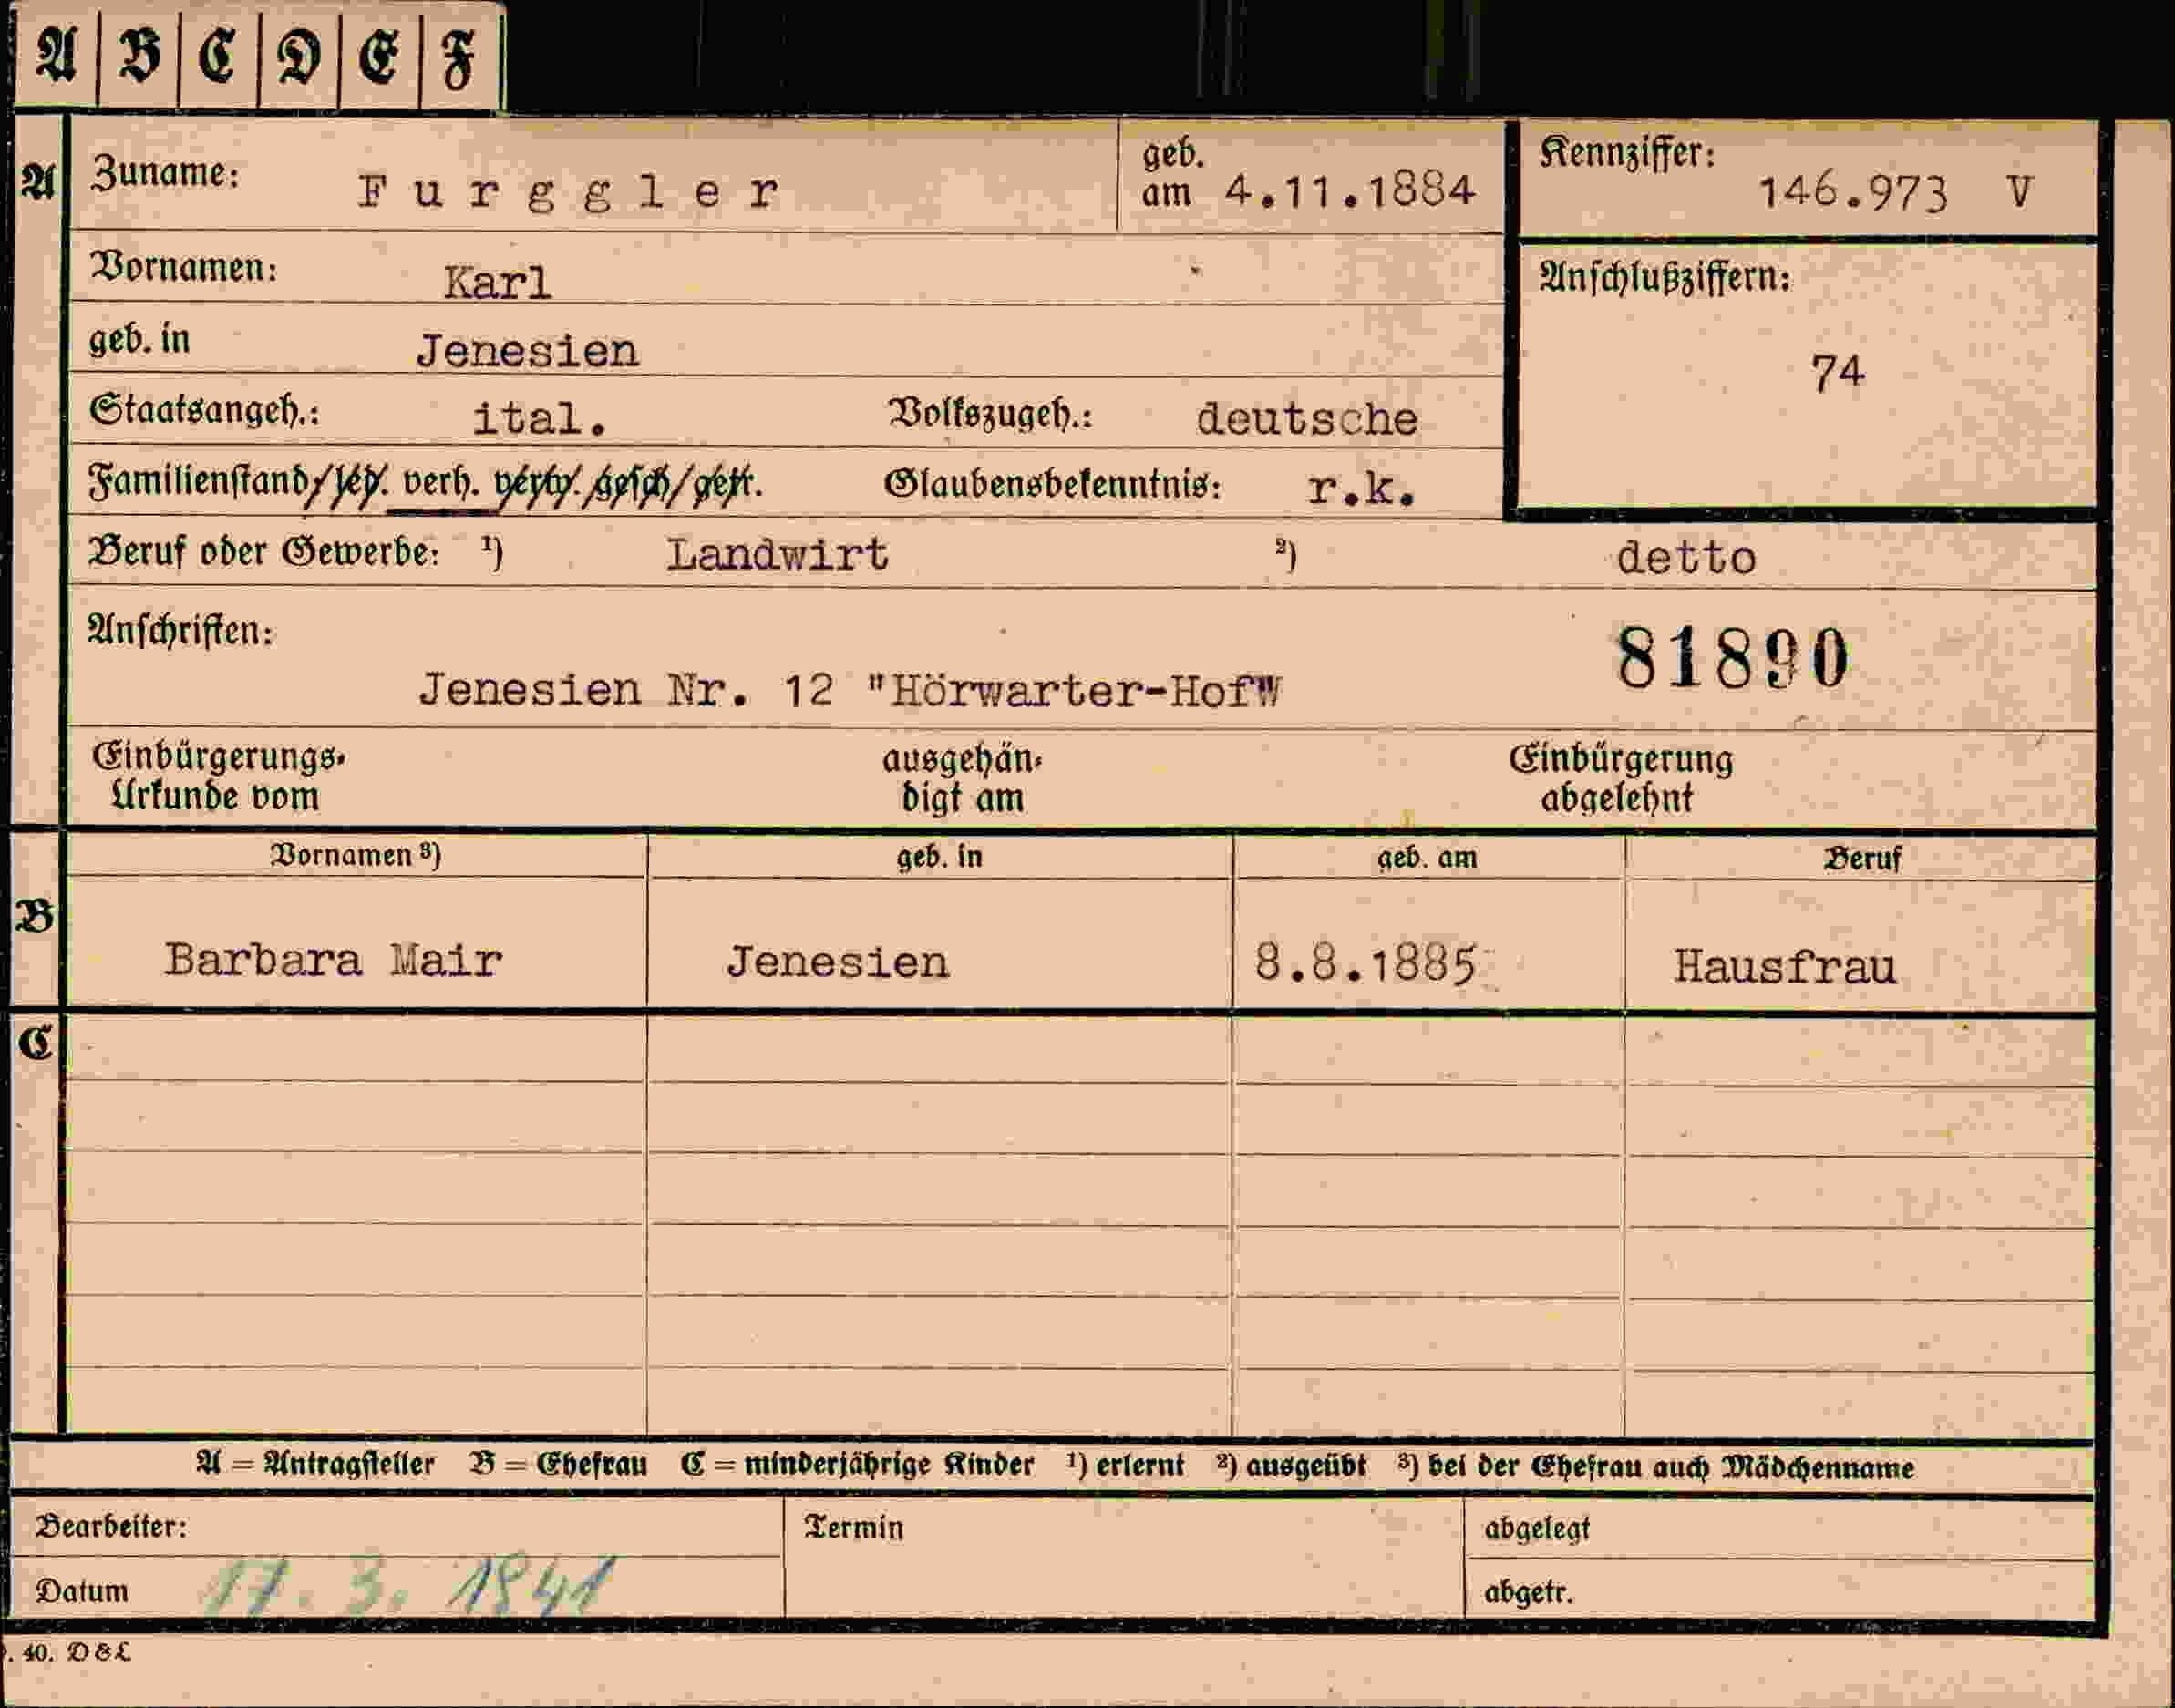 A B C D E F
A Zuname: Furggler geb. am 4.11.1884 Kennziffer: 146.973 V
Vornamen: Karl Anschlußziffern:
geb. in Jenesien 74
Staatsangeh.: ital. Volkszugeh.: deutsche
Familienstand led. verh. verw. gesch. getr. Glaubensbekenntnis: r.k.
Beruf oder Gewerbe: ¹) Landwirt ²) detto
Anschriften: 81890
Jenesien Nr. 12 "Hörwarter-Hof"
Einbürgerungs- ausgehän- Einbürgerung
Urkunde vom digt am abgelehnt
Vornamen ³) geb. in geb. am Beruf
B Barbara Mair Jenesien 8.8.1885 Hausfrau
C
A = Antragsteller B = Ehefrau C = minderjährige Kinder ¹) erlernt ²) ausgeübt ³) bei der Ehefrau auch Mädchenname
Bearbeiter: Termin abgelegt
Datum 17. 3. 1941 abgetr.
40. D&L